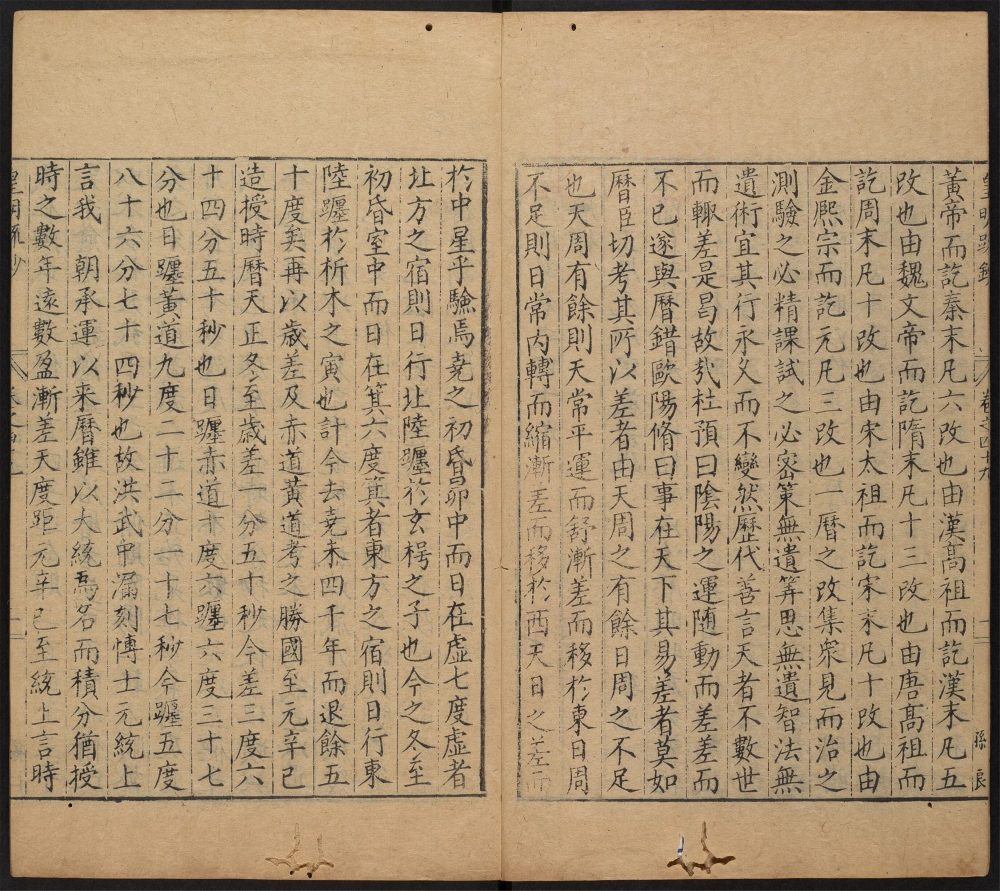 黃帝而訖秦末凡六改也由漢髙祖而訖漢末凡五
改也由魏文帝而訖隋末凡十三改也由唐髙祖而
訖周末凡十改也由宋太祖而訖宋末凡十改也由
金熈宗而訖元凡三改也一曆之改集衆見而治之
測驗之必精課試之必宻策無遺筭思無遺智法無
遺術宜其行永久而不變然歷代善言天者不數世
而輙差是曷故㢤杜預曰陰陽之運随動而差差而
不已遂與曆錯歐陽脩曰事在天下其易差者莫如
曆臣切考其所以差者由天周之有餘日周之不足
也天周有餘則天常平運而舒漸差而移於東日周
不足則日常内轉而縮漸差而移於西天日之差而
於中星乎驗焉堯之初昏昴中而日在虚七度虚者
北方之宿則日行北陸躔於玄枵之子也今之冬至
初昏室中而日在箕六度箕者東方之宿則日行東
陸躔於析木之寅也計今去堯未四千年而退餘五
十度矣再以歲差及赤道黃道考之勝國至元辛巳
造授時曆天正冬至歲差一分五十秒今差三度六
十四分五十秒也日躔赤道十度今躔六度三十七
分也日躔黃道九度二十二分一十七秒今躔五度
八十六分七十四秒也故洪武中漏刻慱士元統上
言我 朝承運以来曆雖以大統爲名而積分猶授
時之數年逺數盈漸差天度距元辛巳至統上言時
卷之四十九
孫良